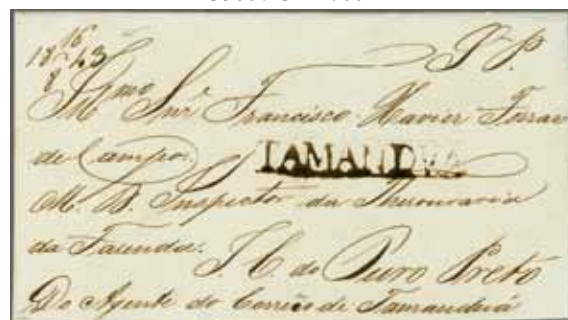 16
18 43
8
P. P.
Illmo Snr Francisco Xavier Ferrao
de Campos
TAMANDUA
M. D. Inspector da Thesouraria
da Fazenda.
I. C. do Ouro Preto
Do Agente do Correio de Tamanduá